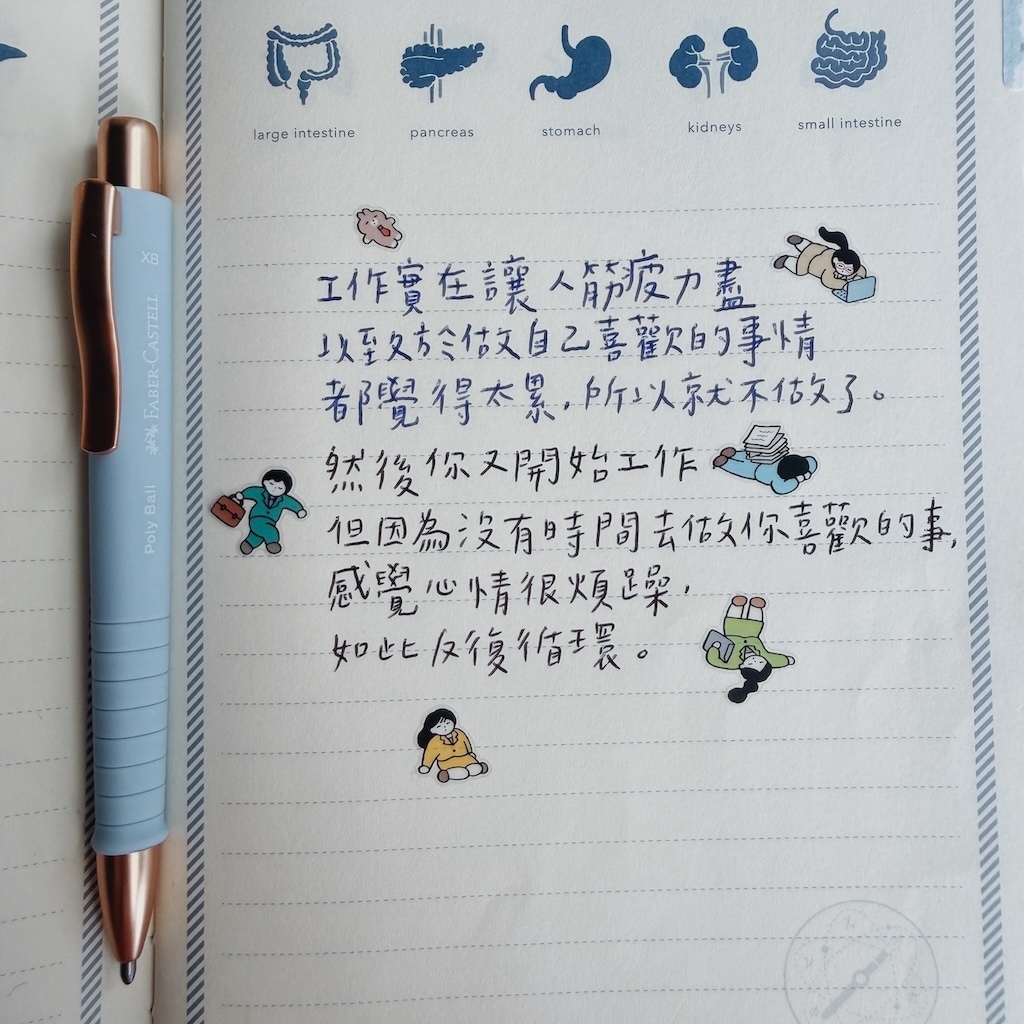 large intestine
pancreas
stomach
kidneys
small intestine
XB
FABER-CASTELL
Poly Ball
工作實在讓人筋疲力盡
以至於於做自己喜歡的事情
都覺得太累,所以就不做了。
然後你又開始工作
但因為沒有時間去做你喜歡的事,
感覺心情很煩躁,
如此反復循環。